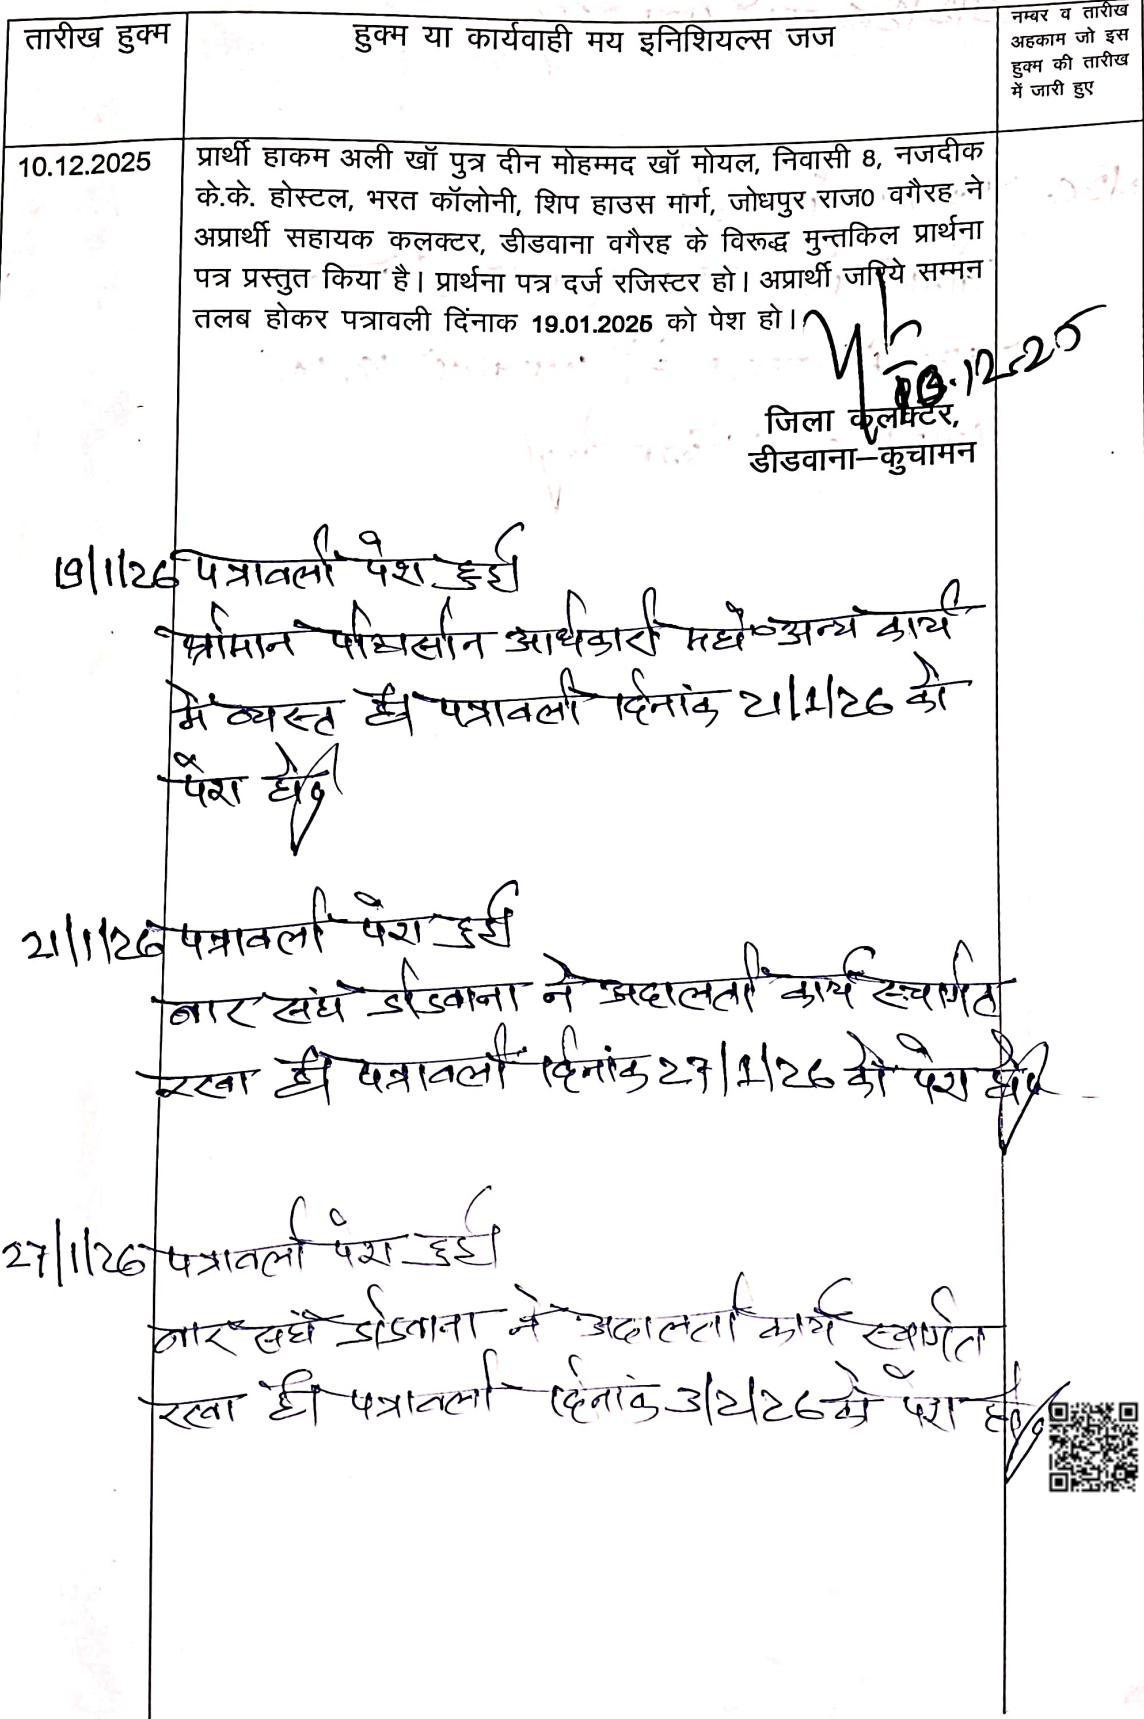 तारीख हुक्म
हुक्म या कार्यवाही मय इनिशियल्स जज
नम्बर व तारीख
अहकाम जो इस
हुक्म की तारीख
में जारी हुए
10.12.2025
प्रार्थी हाकम अली खॉ पुत्र दीन मोहम्मद खॉ मोयल, निवासी 8, नजदीक
के.के. होस्टल, भरत कॉलोनी, शिप हाउस मार्ग, जोधपुर राज0 वगैरह ने
अप्रार्थी सहायक कलक्टर, डीडवाना वगैरह के विरूद्ध मुन्तकिल प्रार्थना
पत्र प्रस्तुत किया है। प्रार्थना पत्र दर्ज रजिस्टर हो। अप्रार्थी जरिये सम्मन
तलब होकर पत्रावली दिंनाक 19.01.2025 को पेश हो।
10.12.25
जिला कलक्टर,
डीडवाना–कुचामन
19/1/26 पत्रावली पेश हुई
श्रीमान पीठासीन अधिकारी अन्य कार्य
में व्यस्त है। पत्रावली दिनांक 21/1/26 को
पेश हो।
21/1/26 पत्रावली पेश हुई
बार संघ डीडवाना ने अदालती कार्य स्थगित
रखा है। पत्रावली दिनांक 27/1/26 को पेश हो।
27/1/26 पत्रावली पेश हुई
बार संघ डीडवाना ने अदालती कार्य स्थगित
रखा है। पत्रावली दिनांक 3/2/26 को पेश हो।